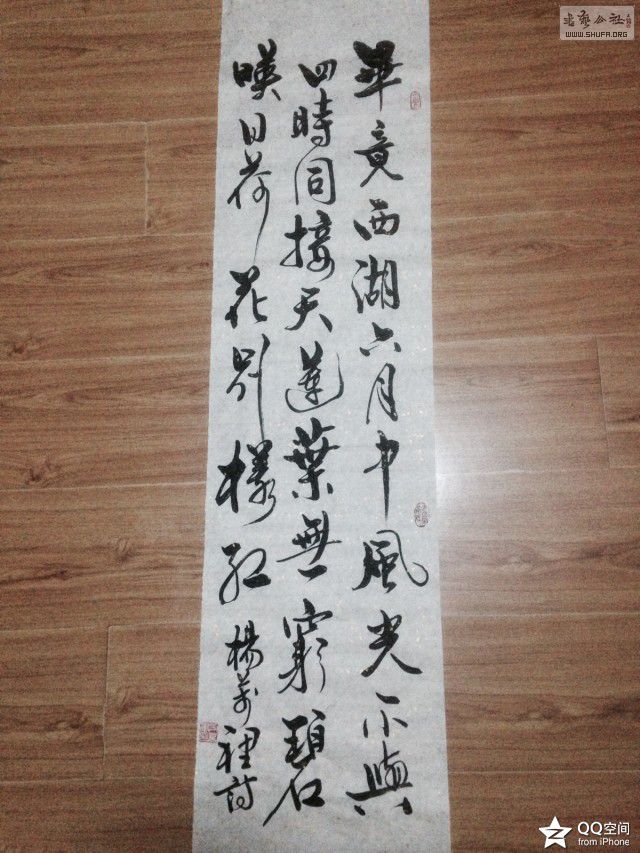 書藝公社
WWW.SHUFA.ORG
畢竟西湖六月中風光不與
四時同接天蓮葉無窮碧
暎日荷花別樣紅
楊萬裡詩
QQ空间
from iPhone